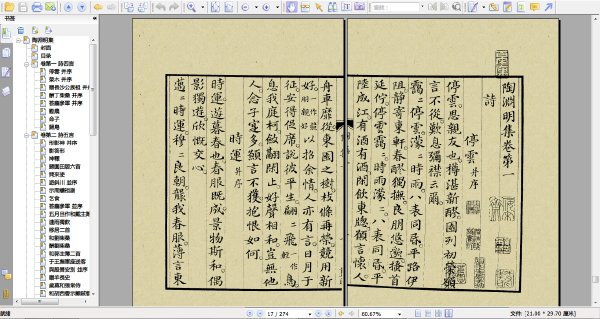 书签
陶淵明集
封面
目录
卷第一 詩四言
停雲 并序
榮木 并序
酬丁柴桑 并序
答龐參軍 并序
勸農
命子
歸鳥
卷第二 詩五言
形影神 并序
影答形
神釋
九日閑居
歸園田居六首
乞食
連雨獨飲
移居二首
和劉柴桑
酬劉柴桑
和郭主簿二首
於王撫軍座送客
與殷晉安別 并序
贈羊長史
歲暮和張常侍
和胡西曹示顧賊曹
陶淵明集卷第一
詩
停雲 并序
停雲思親友也罇湛新醪園列初榮願
言不從歎息彌襟云爾
靄〻停雲濛〻時雨八表同昏平路伊
阻靜寄東軒春醪獨撫良朋悠邈搔首
延佇停雲靄〻時雨濛〻八表同昏平
陸成江有酒有酒閒飲東牕願言懷人
舟車靡從東園之樹枝條再榮競用新
好以招余情人亦有言日月于
征安得促席說彼平生翩〻飛鳥
息我庭柯斂翮閒止好聲相和豈無他
人念子寔多願言不獲抱恨如何
時運 并序
時運遊暮春也春服既成景物斯和偶
影獨遊欣慨交心
邁〻時運穆〻良朝襲我春服薄言東
就绪
17 / 274
60.67%
文件: [21.00 * 29.70 厘米]